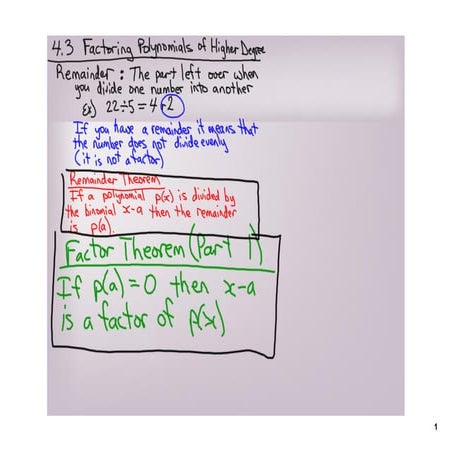 4.3 Factoring Polynomials of Higher Degree
Remainder : The part left over when
you divide one number into another
Ex) 22÷5 = 4 r2
If you have a remainder it means that
the number does not divide evenly
(it is not a factor)
Remainder Theorem
If a polynomial p(x) is divided by
the binomial x-a then the remainder
is p(a).
Factor Theorem (Part 1)
If p(a) = 0 then x-a
is a factor of p(x)
1